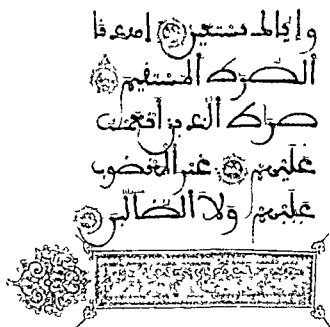 وإياك نستعين اهدنا
الصرط المستقيم
صراط الذين أنعمت
عليهم غير المغضوب
عليهم ولا الضالين